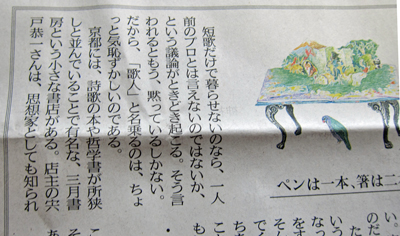 ペンは一本、箸は二
短歌だけで暮らせないのなら、一人
前のプロとは言えないのではないか、
という議論がときどき起こる。そう言
われるともう、黙っているしかない。
だから、「歌人」と名乗るのは、ちょ
っと気恥ずかしいのである。
京都には、詩歌の本や哲学書が所狭
しと並んでいることで有名な、三月書
房という小さな書店がある。店主の宍
戸恭一さんは、思想家としても知られ